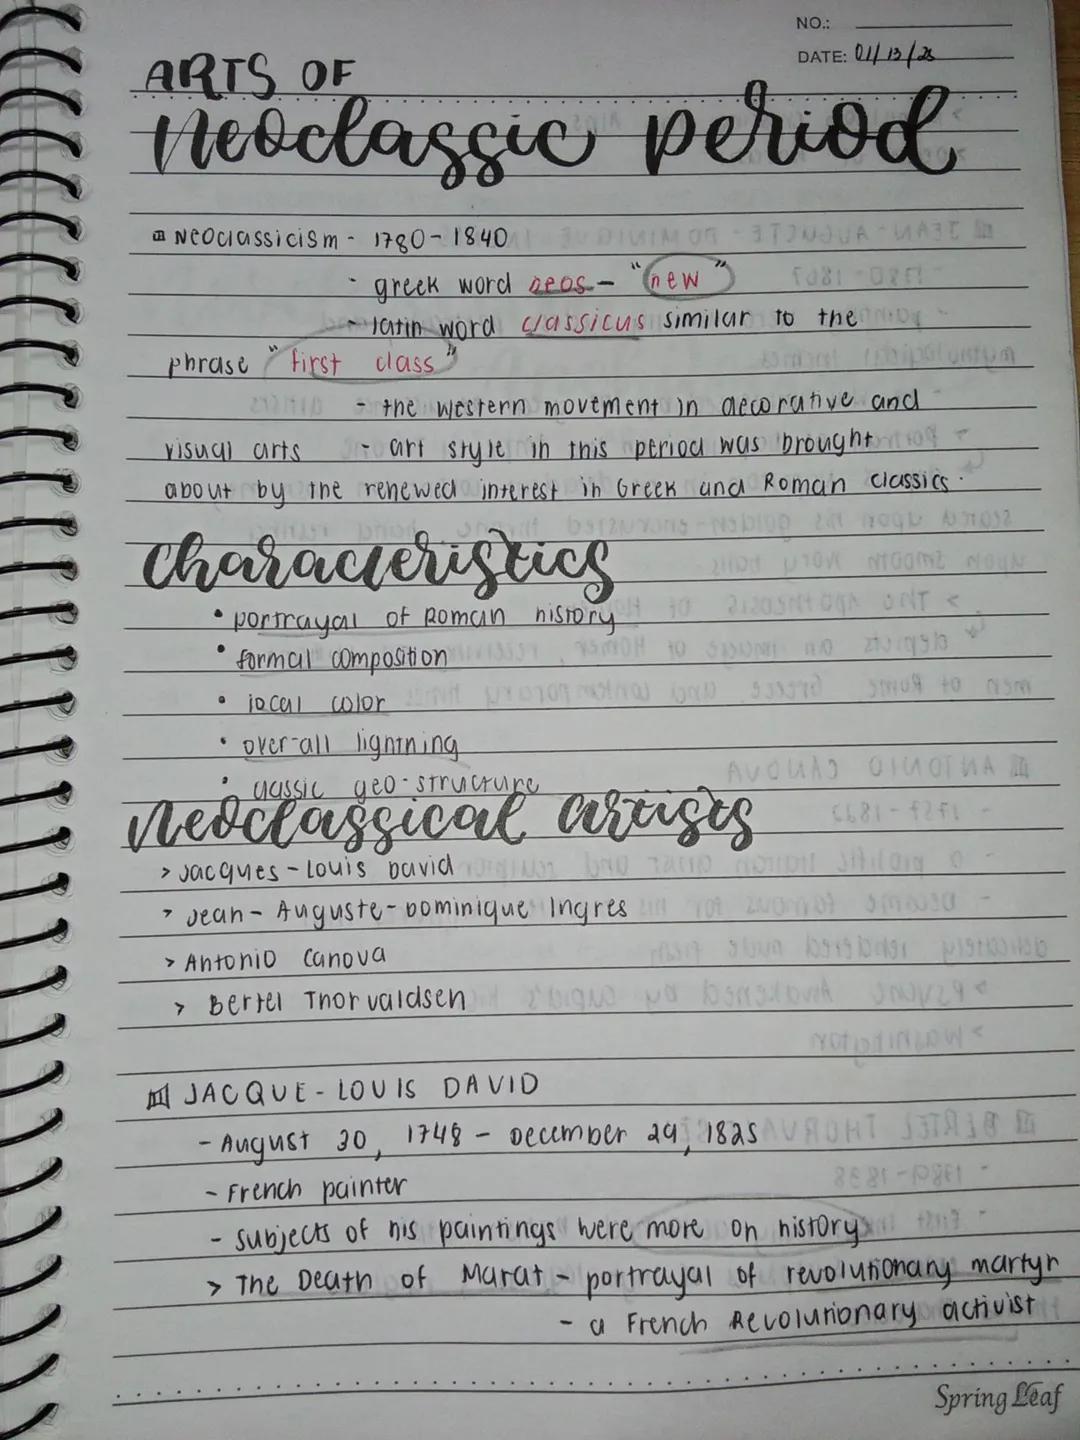 NO.:
DATE: 01/13/25
ARTS OF
neoclassic period
Neoclassicism - 1780-1840
- greek word neos - "new"
- latin word classicus similar to the
phrase "first class"
- the western movement in decorative and
visual arts - art style in this period was brought
about by the renewed interest in Greek and Roman classics.
characteristics
• portrayal of Roman history
• formal composition
• local color
• over-all lightning
• classic geo-structure
neoclassical artists
> Jacques-Louis David
> Jean-Auguste-Dominique Ingres
> Antonio Canova
> Bertel Thorvaldsen
JACQUE-LOUIS DAVID
- August 30, 1748 - December 29, 1825
- French painter
- subjects of his paintings were more on history
> The Death of Marat - portrayal of revolutionary martyr
- a French Revolutionary activist
Spring Leaf